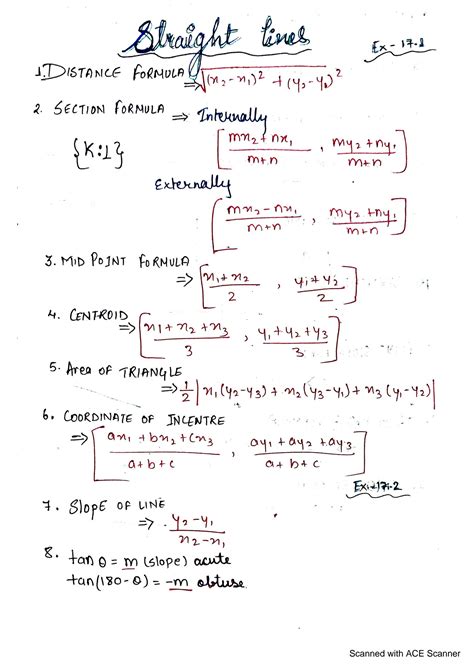 Straight lines
Ex - 17.1
1. DISTANCE FORMULA ⇒ √(x₂-x₁)² + (y₂-y₁)²
2. SECTION FORMULA ⇒ Internally
{K:1} [ (mx₂+nx₁)/(m+n) , (my₂+ny₁)/(m+n) ]
Externally
[ (mx₂-nx₁)/(m+n) , (my₂+ny₁)/(m+n) ]
3. MID POINT FORMULA
⇒ [ (x₁+x₂)/2 , (y₁+y₂)/2 ]
4. CENTROID
⇒ [ (x₁+x₂+x₃)/3 , (y₁+y₂+y₃)/3 ]
5. Area of TRIANGLE
⇒ 1/2 | x₁(y₂-y₃) + x₂(y₃-y₁) + x₃(y₁-y₂) |
6. COORDINATE OF INCENTRE
⇒ [ (ax₁+bx₂+cx₃)/(a+b+c) , (ay₁+ay₂+ay₃)/(a+b+c) ]
Ex:-17.2
7. SlopE OF LINE
⇒ (y₂-y₁)/(x₂-x₁)
8. tan θ = m (slope) acute
tan(180-θ) = -m obtuse.
Scanned with ACE Scanner